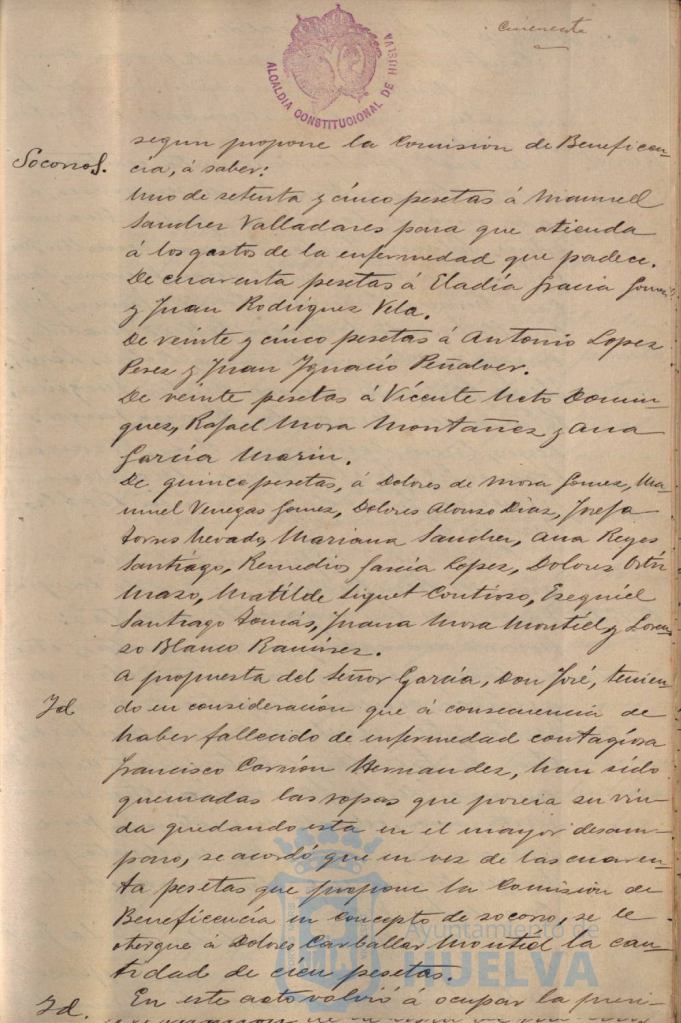 cincuenta
ALCALDIA CONSTITUCIONAL DE HUELVA
Socorros.
segun propone la Comisión de Beneficen-
cia, á saber:
Uno de setenta y cinco pesetas á Manuel
Sanchez Valladares para que atienda
á los gastos de la enfermedad que padece.
De cuarenta pesetas á Eladía Gracia Gomez
y Juan Rodriguez Vela.
De veinte y cinco pesetas á Antonio Lopez
Perez y Juan Ygnacio Peñalver.
De veinte pesetas á Vicente Neto Domin-
guez, Rafael Mora Montañez y Ana
García Marin.
De quince pesetas, á Dolores de Mora Gomez, Ma-
nuel Venegas Gomez, Dolores Alonso Diaz, Josefa
Torres Nevado, Mariana Sanchez, Ana Reyes
Santiago, Remedios García Lopez, Dolores
Mazo, Matilde Contioso, Ezequiél
Santiago Tomás, Juana Mora Montiel y Loren-
zo Blanco Ramirez.
Yd
A propuesta del Señor García, Don José, tenien-
do en consideración que á consecuencia de
haber fallecido de enfermedad contagiosa
Francisco Carrión Hernandez, han sido
quemadas las ropas que poseia su viu-
da quedando esta en el mayor desam-
paro, se acordó que en vez de las cuaren-
ta pesetas que propone la Comisión de
Beneficencia en concepto de socorro, se le
otorgue á Dolores Carballar Montiel la can-
tidad de cien pesetas.
Yd.
En este acto volvió á ocupar la presi-
Ayuntamiento de
HUELVA